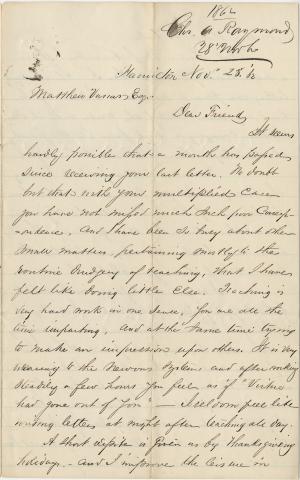 1862
Chs. A Raymond
28 Nov 62
Hamilton Nov. 28. '62
Matthew Vassar Esq.
Dear Friend,
It seems
hardly possible that a month has passed
since receiving your last letter. No doubt
but that with your multiplied cares
you have not missed much such poor corresp-
ondence. And I have been so busy about other
small matters, pertaining mostly to the
routine drudgery of teaching, that I have
felt like doing little else. Teaching is
very hard work in one sense, you are all the
time imparting, and at the same time trying
to make an impression upon others. It is very
wearing to the nervous system and after working
steadily a few hours you feel as if "virtue
had gone out of you" — I seldom feel like
writing letters at night after teaching all day.
A short respite is given us by Thanksgiving
holidays. - and I improve the leisure in